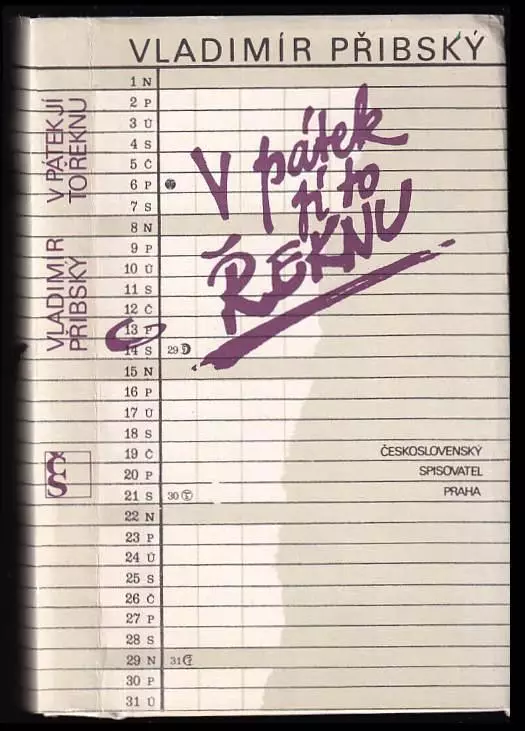 VLADIMÍR PŘIBSKÝ
V pátek
jí to
ŘEKNU
1 N
2 P
3 Ú
4 S
5 Č
6 P
7 S
8 N
9 P
10 Ú
11 S
12 Č
13 P
14 S 29
15 N
16 P
17 Ú
18 S
19 Č
20 P
21 S 30
22 N
23 P
24 Ú
25 S
26 Č
27 P
28 S
29 N 31
30 P
31 Ú
ČESKOSLOVENSKÝ
SPISOVATEL
PRAHA
VLADIMÍR
PŘIBSKÝ
V PÁTEK JÍ
TO ŘEKNU
ČS